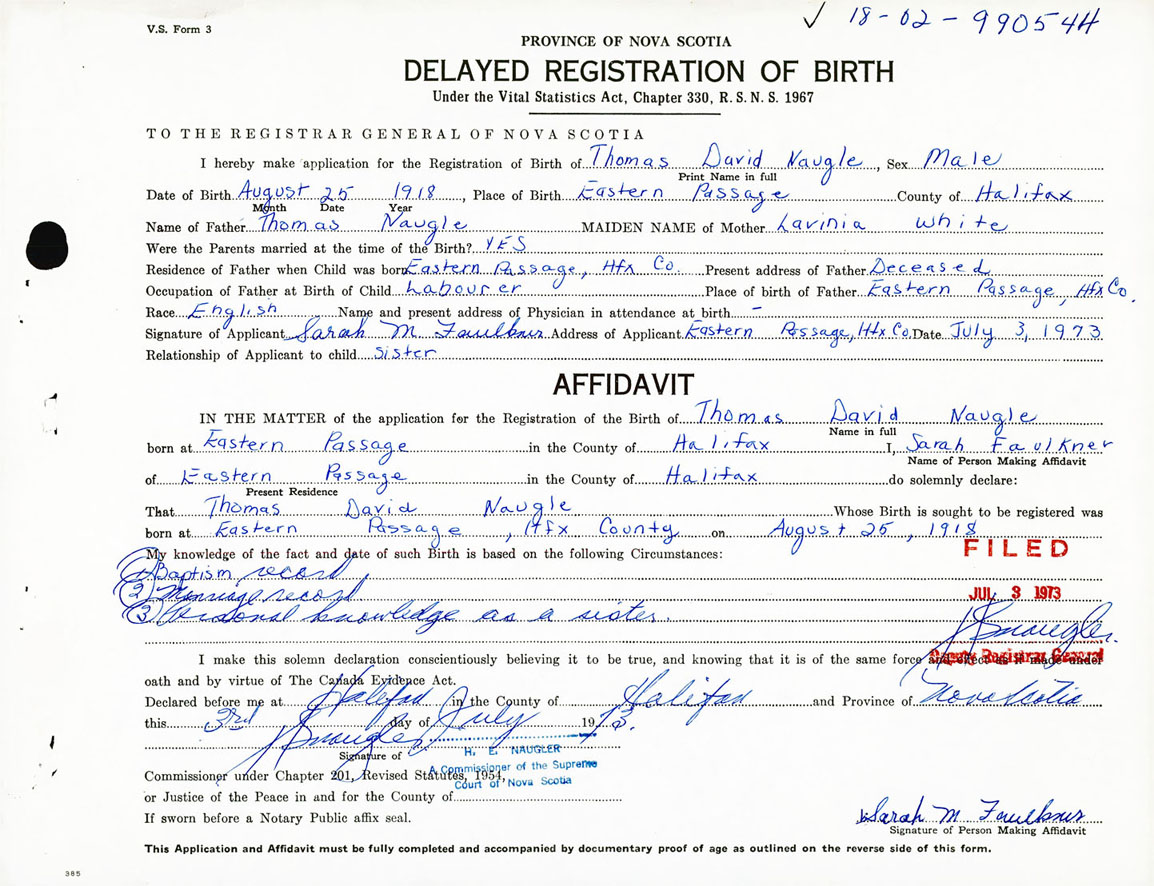 V.S. Form 3
✓ 18-02-99054H
PROVINCE OF NOVA SCOTIA
DELAYED REGISTRATION OF BIRTH
Under the Vital Statistics Act, Chapter 330, R.S.N.S. 1967
TO THE REGISTRAR GENERAL OF NOVA SCOTIA
I hereby make application for the Registration of Birth of Thomas David Naugle, Sex Male
Print Name in full
Date of Birth August 25 1918, Place of Birth Eastern Passage County of Halifax
Month Date Year
Name of Father Thomas Naugle MAIDEN NAME of Mother Lavinia White
Were the Parents married at the time of the Birth? YES
Residence of Father when Child was born Eastern Passage, Hfx Co. Present address of Father Deceased
Occupation of Father at Birth of Child Labourer Place of birth of Father Eastern Passage, Hfx Co.
Race English Name and present address of Physician in attendance at birth -
Signature of Applicant Sarah M Faulkner Address of Applicant Eastern Passage, Hfx Co. Date July 3, 1973
Relationship of Applicant to child sister
AFFIDAVIT
IN THE MATTER of the application for the Registration of the Birth of Thomas David Naugle
Name in full
born at Eastern Passage in the County of Halifax I, Sarah Faulkner
Name of Person Making Affidavit
of Eastern Passage in the County of Halifax do solemnly declare:
Present Residence
That Thomas David Naugle Whose Birth is sought to be registered was
born at Eastern Passage, Hfx County on August 25, 1918
My knowledge of the fact and date of such Birth is based on the following Circumstances:
FILED
(1) Baptism record
(2) Marriage record
JUL 3 1973
(3) Personal knowledge as a sister.
I make this solemn declaration conscientiously believing it to be true, and knowing that it is of the same force and effect as if made under
Deputy Registrar General
oath and by virtue of The Canada Evidence Act.
Declared before me at Halifax in the County of Halifax and Province of Nova Scotia
this 3rd day of July 1973.
H. E. NAUGLER
Signature of
A Commissioner of the Supreme
Commissioner under Chapter 201, Revised Statutes, 1954,
Court of Nova Scotia
or Justice of the Peace in and for the County of
If sworn before a Notary Public affix seal.
Sarah M Faulkner
Signature of Person Making Affidavit
This Application and Affidavit must be fully completed and accompanied by documentary proof of age as outlined on the reverse side of this form.
385